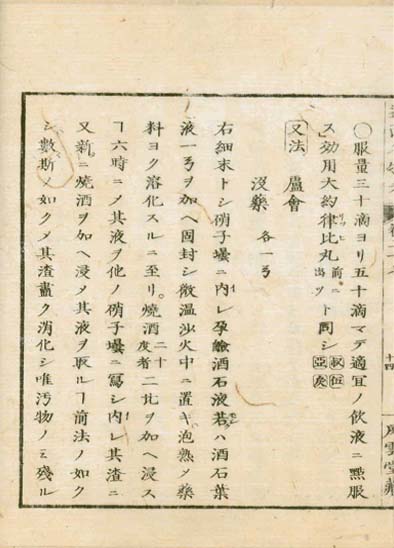 〇服量三十滴ヨリ五十滴マデ適宜ノ飲液ニ點服
ス効用大約律比丸前ニ出ヅト同シ叔伍亞度
又法 盧會
沒藥 各一弓
右細末トシ硝子壜ニ内レ孕鹼酒石液若クハ酒石葉
液一弓ヲ加ヘ固封シ微温沙火中ニ置キ泡熟メ藥
料ヨク溶化スルニ至リ燒酒二十度者二比ヲ加ヘ浸ス
ヿ六時ニメ其液ヲ他ノ硝子壜ニ寫シ内レ其渣ニ
又新ニ燒酒ヲ加ヘ浸メ其液ヲ取ルヿ前法ノ如ク
シ數斯ノ如クメ其渣盡ク消化シ唯汚物ノミ殘ル
十四
風雲堂藏